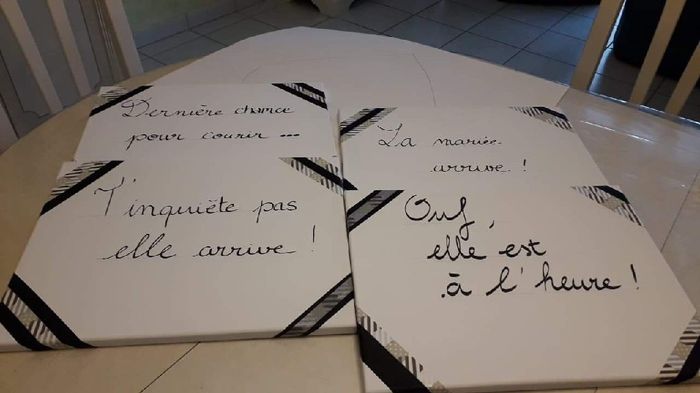 Dernière chance
pour courir ...
La mariée
arrive !
T'inquiète pas
elle arrive !
Ouf,
elle est
à l'heure !